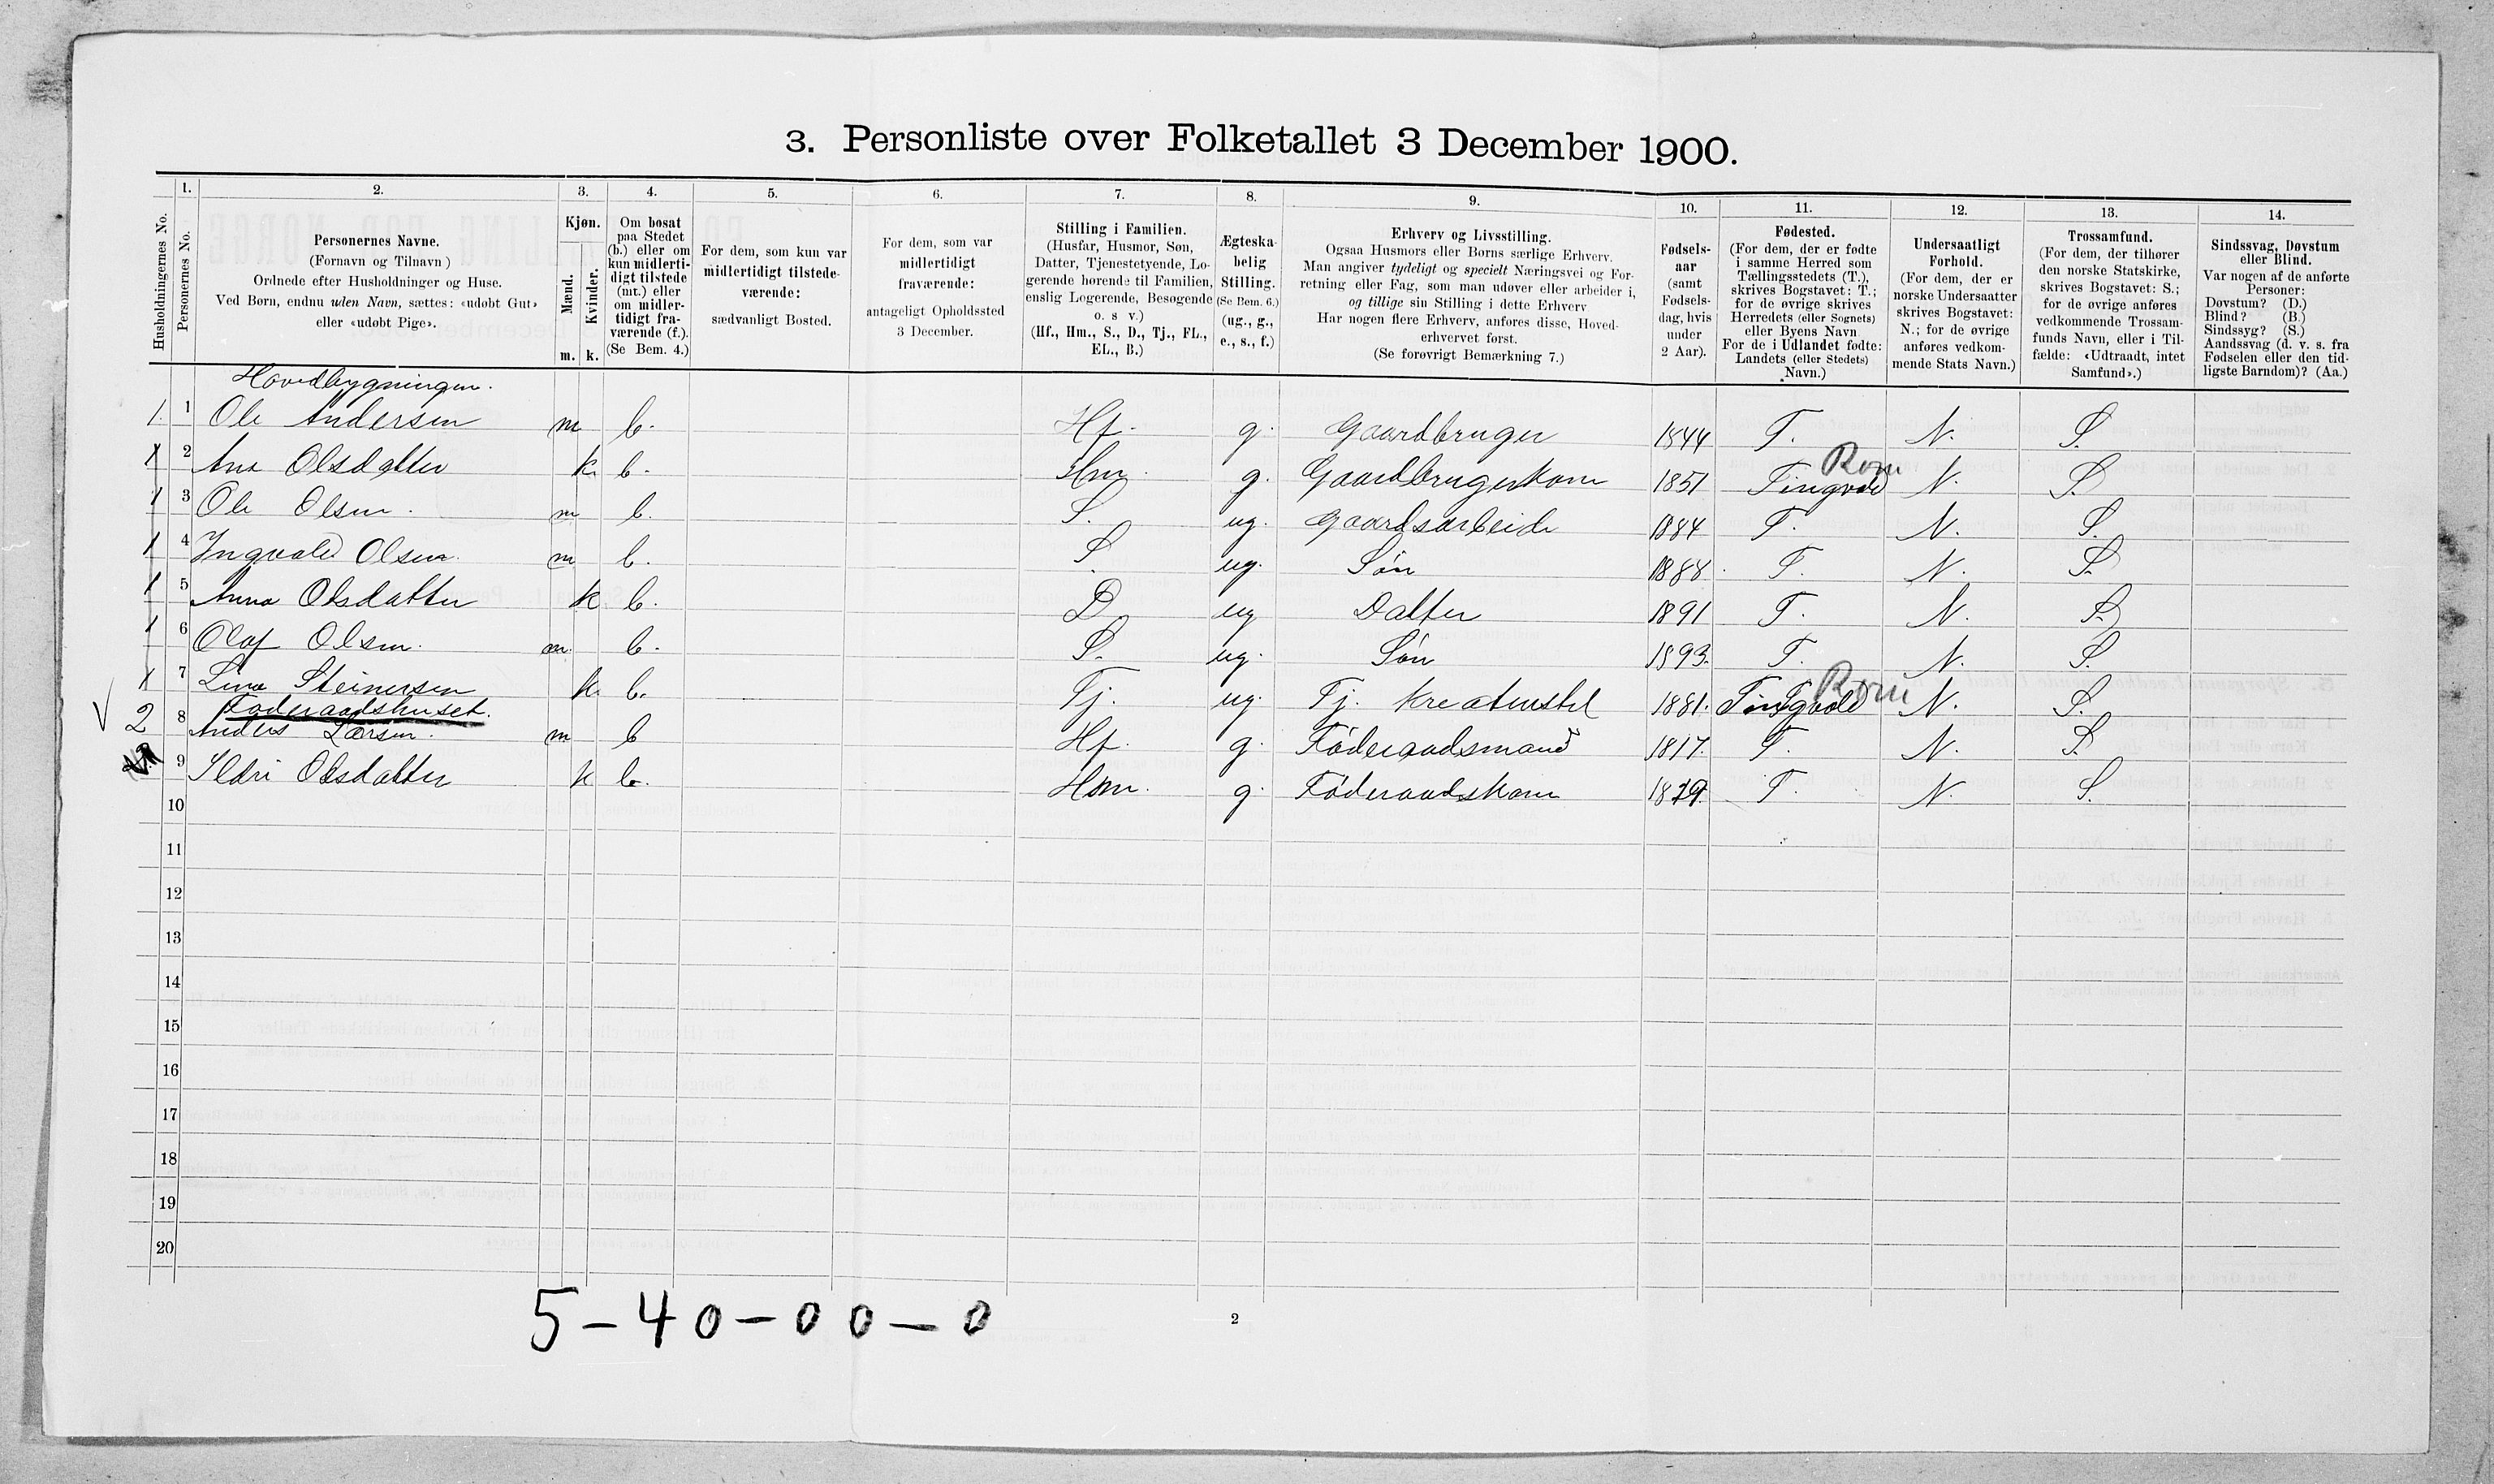 3. Personliste over Folketallet 3 December 1900.
1. 2. 3. 4. 5. 6. 7. 8. 9. 10. 11. 12. 13. 14.
Husholdningernes No.
Personernes No.
Personernes Navne.
(Fornavn og Tilnavn)
Ordnede efter Husholdninger og Huse.
Ved Børn, endnu uden Navn, sættes: «udøbt Gut»
eller «udøbt Pige».
Kjøn.
Mænd.
Kvinder.
m. k.
Om bosat
paa Stedet
(b.) eller om
kun midlerti-
digt tilstede
(mt.) eller
om midler-
tidigt fra-
værende (f.).
(Se Bem. 4.)
For dem, som kun var
midlertidigt tilstede-
værende:
sædvanligt Bosted.
For dem, som var
midlertidigt
fraværende:
antageligt Opholdssted
3 December.
Stilling i Familien.
(Husfar, Husmor, Søn,
Datter, Tjenestetyende, Lo-
gerende hørende til Familien,
enslig Logerende, Besøgende
o. s v.)
(Hf., Hm., S., D., Tj., FL.,
EL., B.)
Ægteska-
belig
Stilling.
(Se Bem. 6.)
(ug., g.,
e., s., f.)
Erhverv og Livsstilling.
Ogsaa Husmors eller Børns særlige Erhverv.
Man angiver tydeligt og specielt Næringsvei og For-
retning eller Fag, som man udøver eller arbeider i,
og tillige sin Stilling i dette Erhverv
Har nogen flere Erhverv, anføres disse, Hoved-
erhvervet først.
(Se forøvrigt Bemærkning 7.)
Fødsels-
aar
(samt
Fødsels-
dag, hvis
under
2 Aar).
Fødested.
(For dem, der er fødte
i samme Herred som
Tællingsstedets (T.),
skrives Bogstavet: T.;
for de øvrige skrives
Herredets (eller Sognets)
eller Byens Navn
For de i Udlandet fødte:
Landets (eller Stedets)
Navn.)
Undersaatligt
Forhold.
(For dem, der er
norske Undersaatter
skrives Bogstavet:
N.; for de øvrige
anføres vedkom-
mende Stats Navn.)
Trossamfund.
(For dem, der tilhører
den norske Statskirke,
skrives Bogstavet: S.;
for de øvrige anføres
vedkommende Trossam-
funds Navn, eller i Til-
fælde: «Udtraadt, intet
Samfund».)
Sindssvag, Døvstum
eller Blind.
Var nogen af de anførte
Personer:
Døvstum? (D.)
Blind? (B.)
Sindssyg? (S.)
Aandssvag (d. v. s. fra
Fødselen eller den tid-
ligste Barndom)? (Aa.)
Hovedbygningen.
1. 1 Ole Andersen m b. Hf. g. Gaardbruger 1844 T. N. S.
1 2 Ane Olsdatter k. b. Hm. g. Gaardbrugerkone 1851 Tingvold Rom N. S.
1 3 Ole Olsen. m b. S. ug. Gaardsarbeide 1884 T. N. S.
1 4 Ingvald Olsen. m b. S. ug. Søn 1888 T. N. S.
1 5 Anna Olsdatter k b. D ug Datter 1891 T. N. S
1 6 Olaf Olsen. m. b. S. ug. Søn 1893. T. N. S.
1 7 Lina Steinersen k. b. Tj. ug. Tj. Kreaturstel 1881. Tingvold Rom N. S.
Føderaadshuset.
2 8 Anders Larsen. m b Hf. g. Føderaadsmand 1817. T. N. S.
9 Ildri Olsdatter k b. Hm. g. Føderaadskone 1829. T. N. S.
10
11
12
13
14
15
16
17
18
19
20
5-40-00-0
2